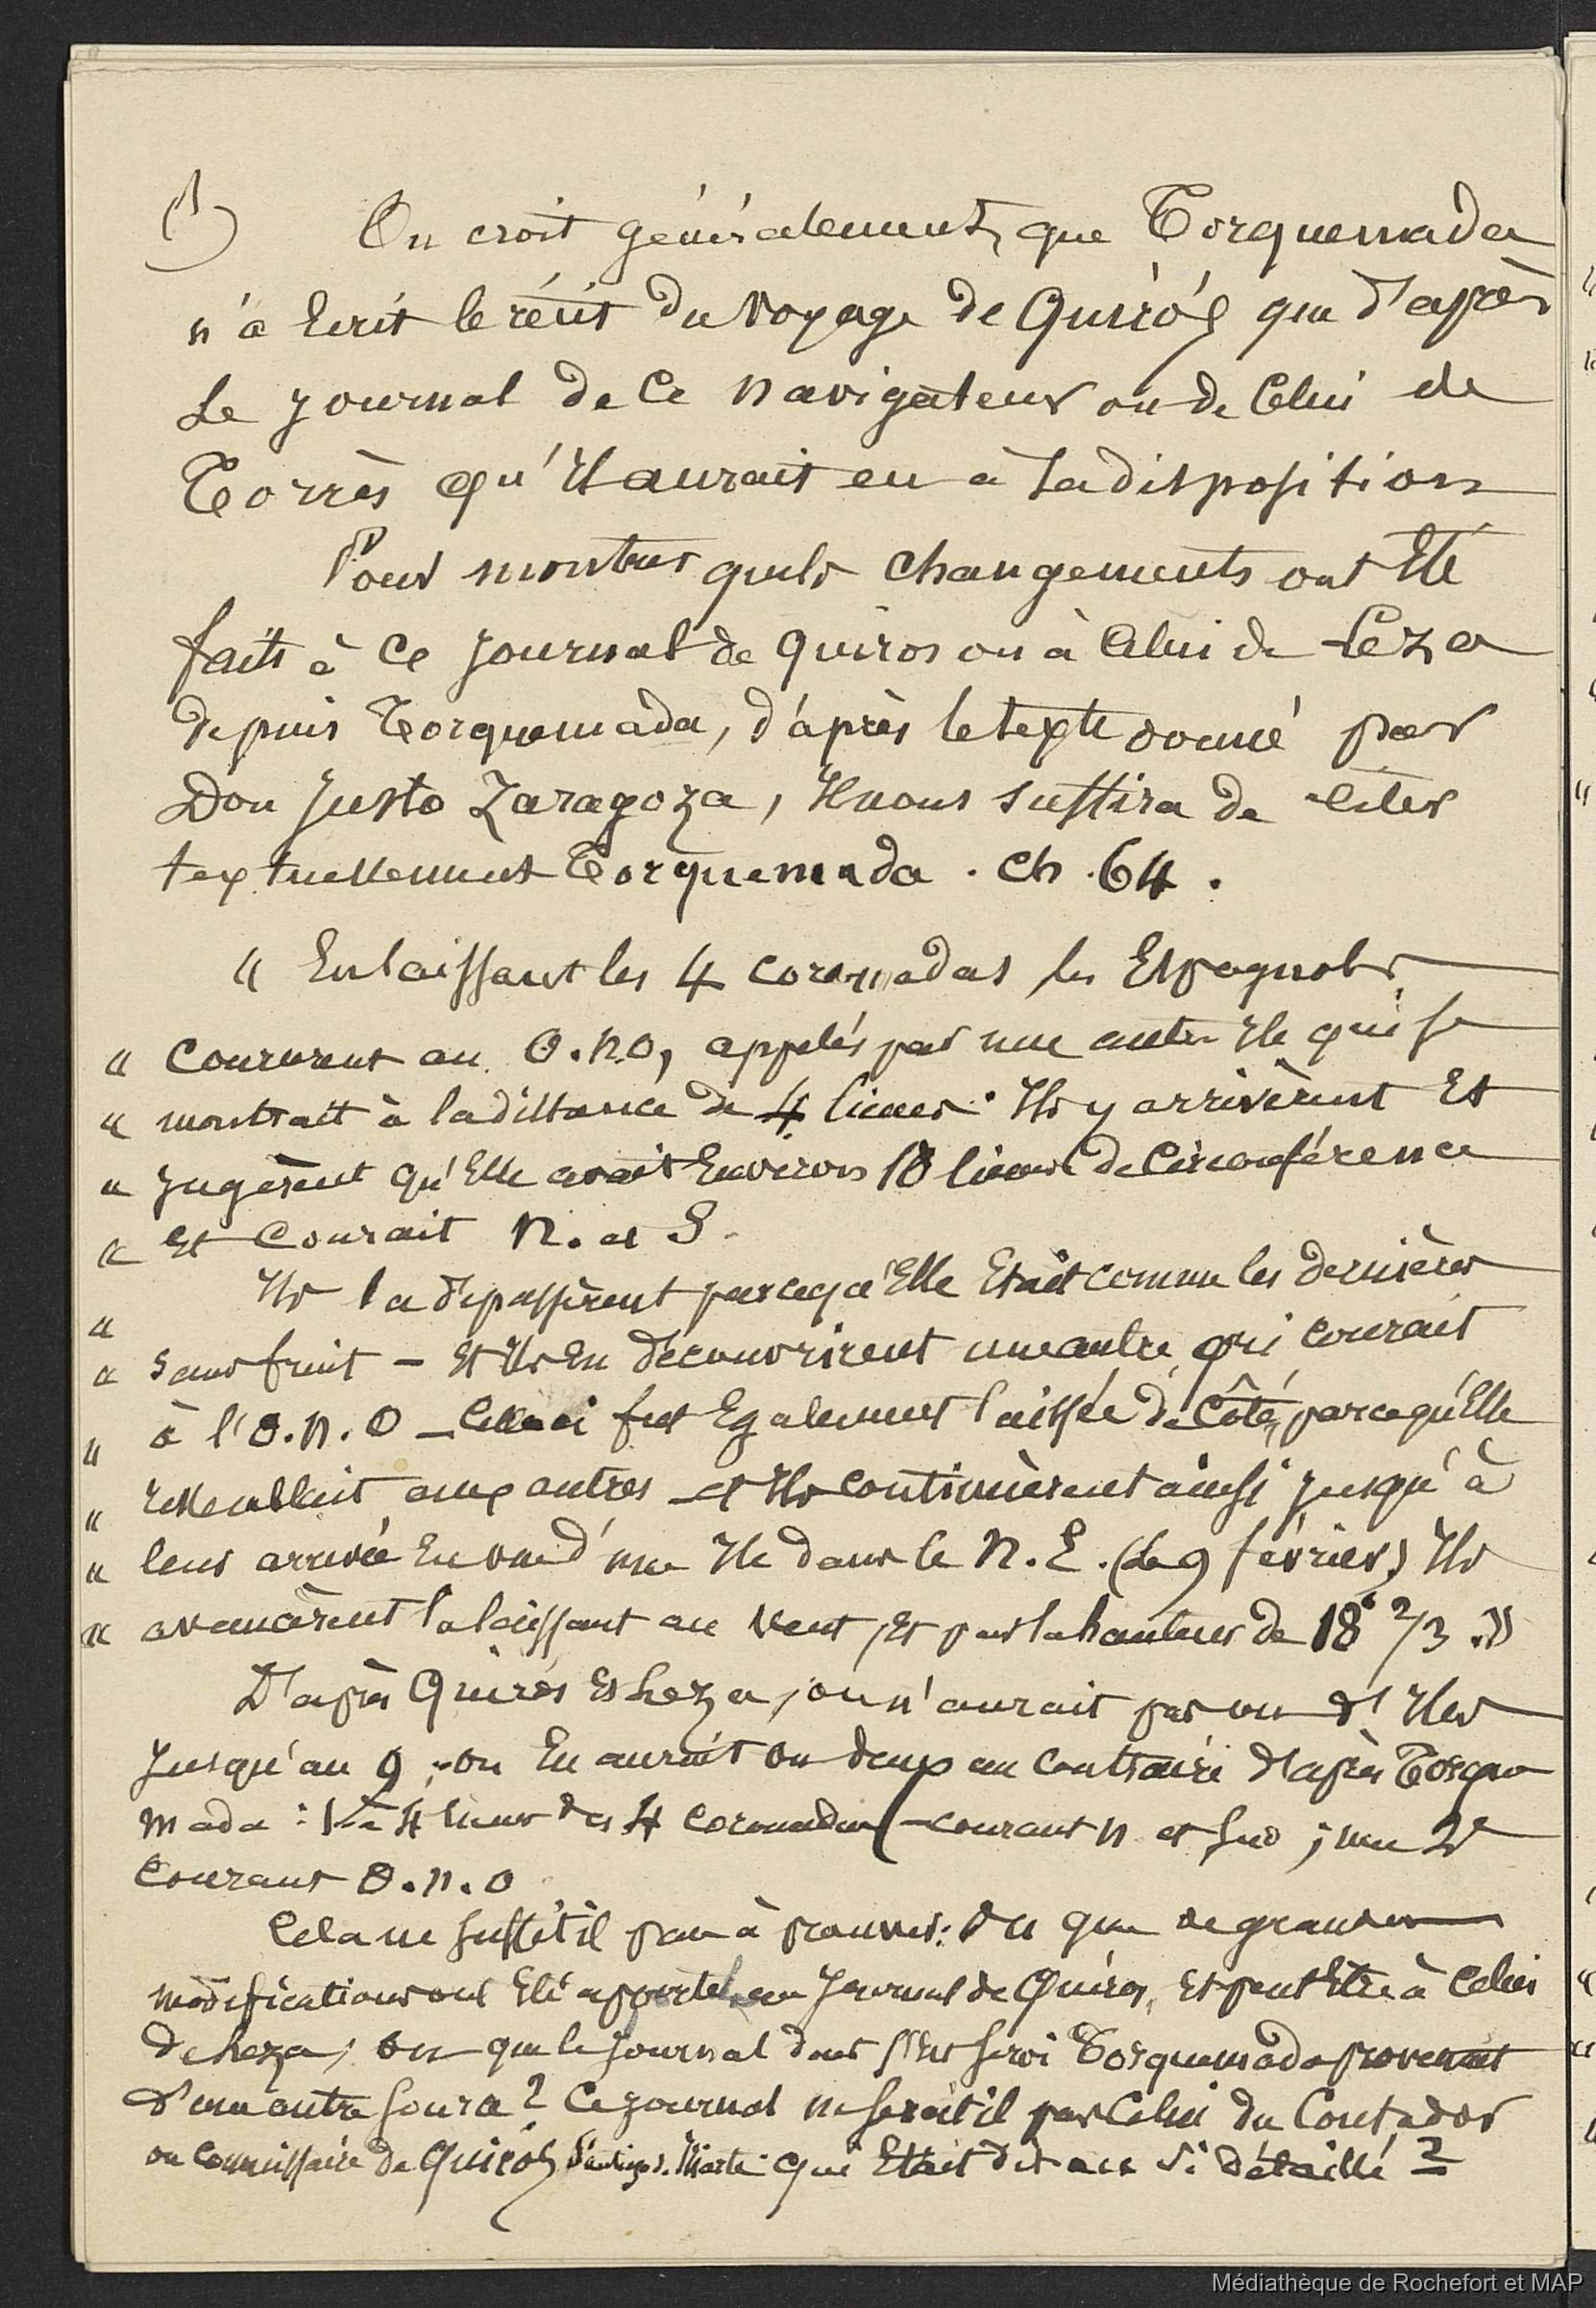 (1) On croit généralement que Torquemada
n'a Ecrit le récit du voyage de Quiros que d'après
Le journal de ce navigateur ou de Celui de
Torrès qu'Il aurait eu à sa disposition
Pour montrer quels changements ont Eté
faits à ce journal de Quiros ou à Celui de Leza
depuis Torquemada, d'après le texte donné par
Don Justo Zaragoza, Il nous suffira de citer
textuellement Torquemada. Ch. 64.
" En laissant les 4 coronadas les Espagnols
" Coururent au O.N.O, appelés par une autre Ile qui se
" montrait à la distance de 4 lieues. Ils y arrivèrent Et
" jugèrent qu'Elle avait Environ 10 lieues de Circonférence
" Et Courait N. et S.
" Ils la dépassèrent parcequ'Elle Etait comme les dernières
" sans fruit - Et Ils En découvrirent une autre qui courait
" à l'O.N.O - Celle ci fut Egalement laissée de Côté, parcequ'Elle
" ressemblait aux autres - et Ils continuèrent ainsi jusqu'à
" leur arrivée En vue d'une Ile dans le N.E. (Le 9 février) Ils
" avancèrent la laissant au vent, Et par la hauteur de 18° 2/3. "
D'après Quiros Et Leza, on n'aurait pas vu d'Iles
Jusqu'au 9, - on En aurait vu deux au contraire d'après Torque
mada : 1re à 4 lieues des 4 coronadas - courant N et Sud ; une 2e
Courant O.N.O
Cela ne suffit il pas à prouver : ou que de grandes
modifications ont Eté apportées au Journal de Quiros, Et peut Etre à Celui
de Leza ; ou que le journal dont s'est servi Torquemada provenait
d'une autre source ? Ce journal ne serait il pas Celui du Contador
ou Commissaire de Quiros, Iturbe qui Etait dit on si détaillé ?
Médiathèque de Rochefort et MAP